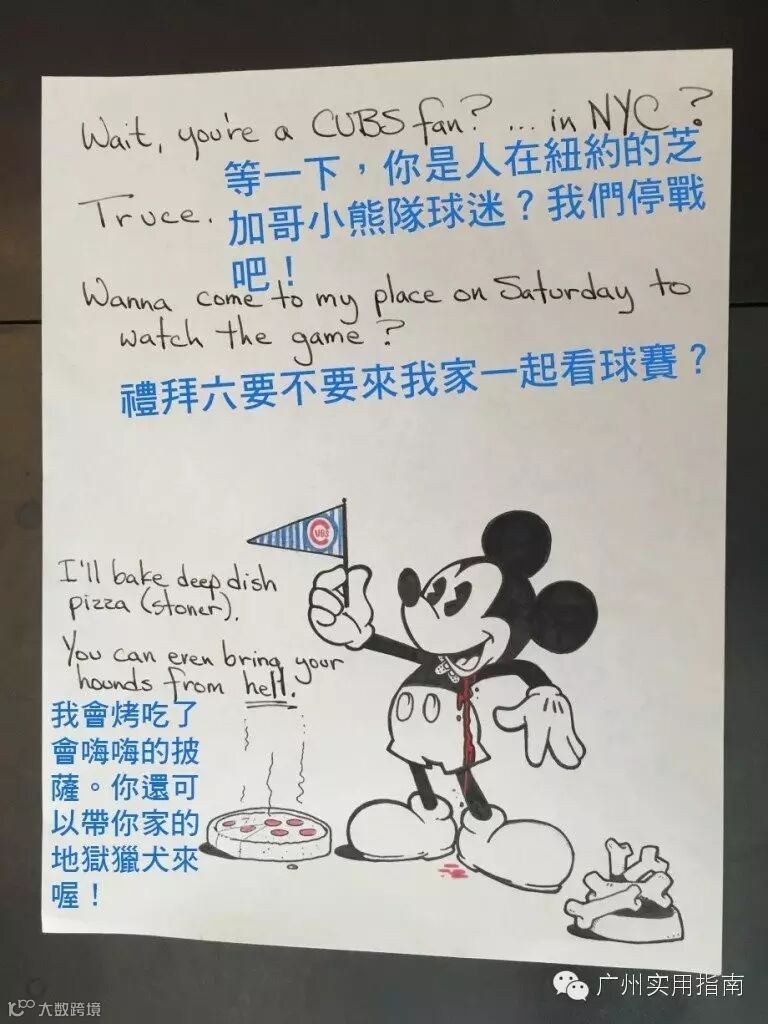 Wait, you're a CUBS fan? ... in NYC?
等一下，你是人在紐約的芝
Truce.
加哥小熊隊球迷？我們停戰
吧！
Wanna come to my place on Saturday to
watch the game?
禮拜六要不要來我家一起看球賽？
CUBS
I'll bake deep dish
pizza (stoner).
You can even bring your
hounds from hell.
我會烤吃了
會嗨嗨的披
薩。你還可
以帶你家的
地獄獵犬來
喔！
广州实用指南
大数跨境